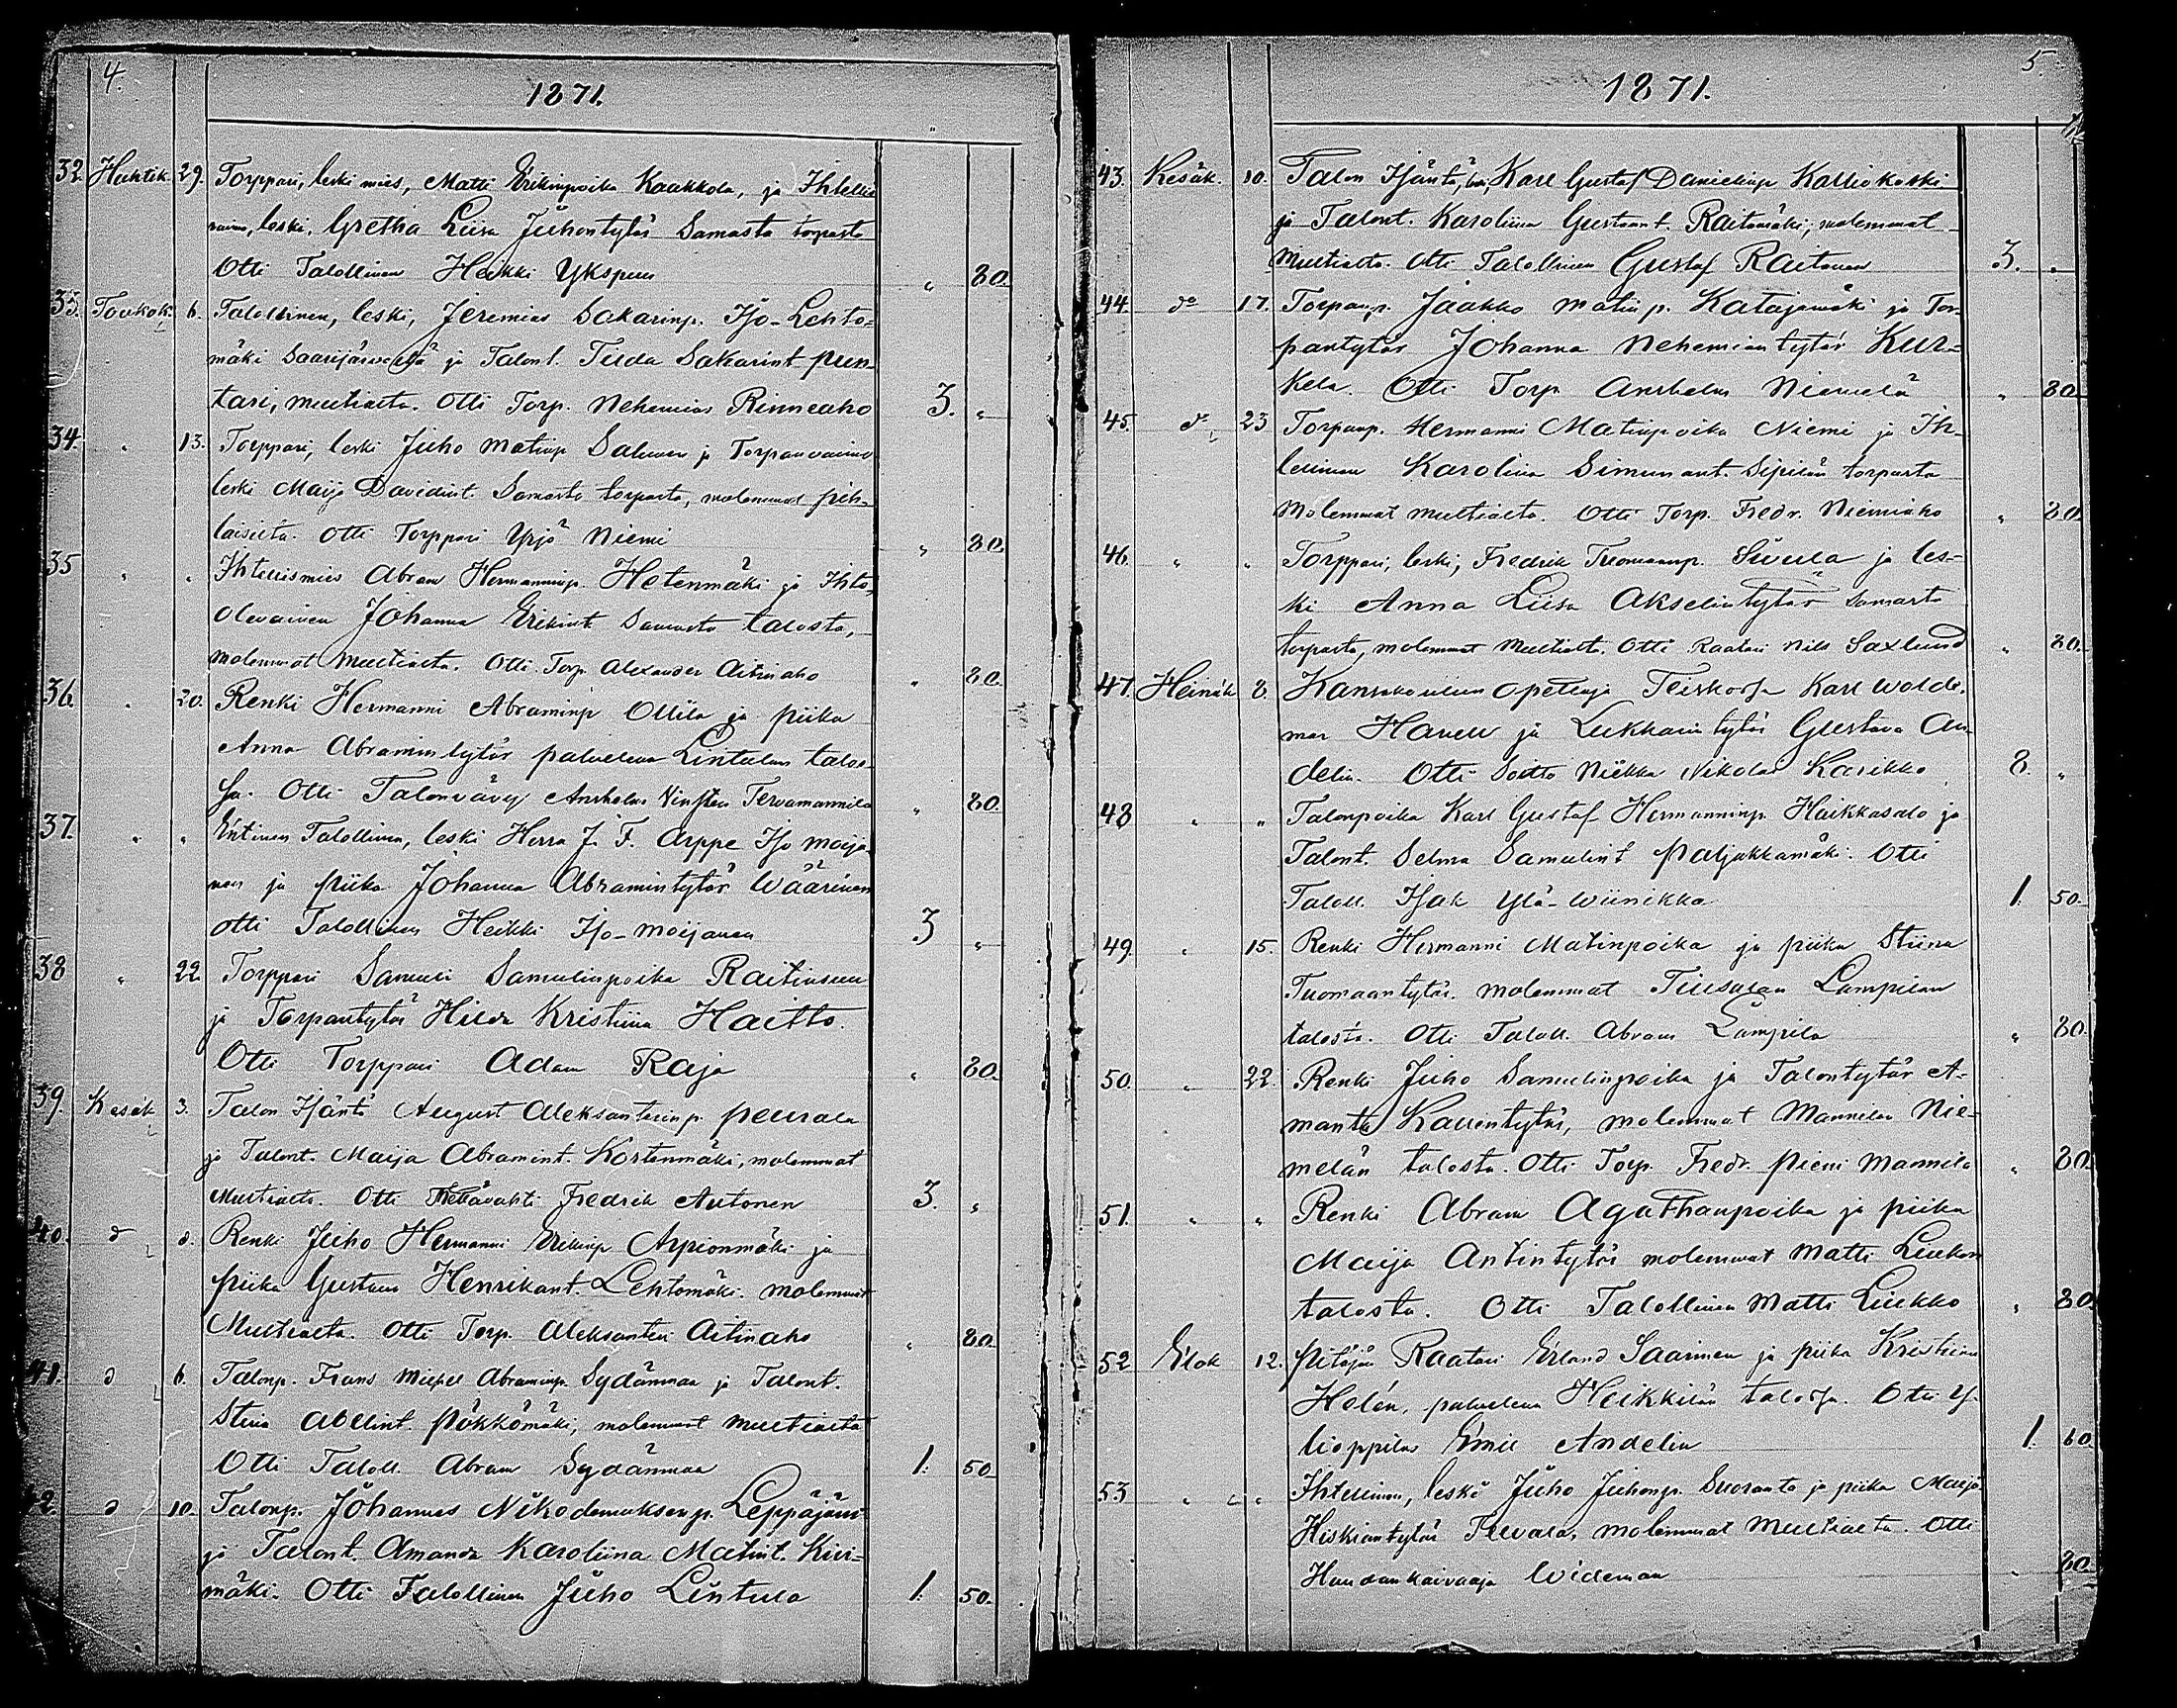 4.
1871.
32. Huhtik. 29. Torppari, leski mies, Matti Erikinpoika Kaakkola, ja Ihtellis
vaimo, leski, Gretha Liisa Juhontytär Samasta torpasta
Otti Talollinen Heikki Ykspuu " 80.
33. Toukok. 6. Talollinen, leski, Jeremias Sakarinp. Iso-Lehto=
mäki Saarijärveltä ja Talont. Tiida Sakarint. Pun-
tari, multialta. Otti Torp. Nehemias Rinneaho 3. "
34. " 13. Torppari, leski Juho Matinp. Salinen ja Torpanvaimo
leski Maija Davidint. Samasta torpasta, molemmat pih-
laisista. Otti Torppari Yrjö Niemi " 80.
35 " " Ihtellismies Abram Hermanninp. Hetenmäki ja Ihto-
olevainen Johanna Erikint. Samasta talosta,
molemmat multialta. Otti Torp. Alexander Aitinaho " 80.
36. " 20. Renki Hermanni Abraminp. Ollila ja piika
Anna Abramintytär palveleva Lintulan talos-
sa. Otti Talonvävy Anshelm Tervamannila " 80.
37. " " Entinen Talollinen, leski Herra J. F. Arppe Iso moija-
nen ja piika Johanna Abramintytär Wäärinen
otti Talollinen Heikki Iso-moijanen 3 "
38 " 22 Torppari Samuli Samulinpoika Raitinsuu
ja Torpantytär Hilda Kristiina Haitto.
Otti Torppari Adam Raja " 80.
39. Kesäk. 3. Talon Isäntä August Aleksanterinp. Peurala
ja Talont. Maija Abramint. Kortenmäki, molemmat
Multialta. Otti Fredrik Autonen 3. "
40. d 3. Renki Juho Hermanni Erikinp. Arpionmäki ja
piika Gustava Henrikant. Lehtomäki. molemmat
Multialta. Otti Torp. Aleksanteri Aitinaho " 80.
41. d 6. Talonp. Frans Mikael Abraminp. Sydänmaa ja Talont.
Stina Abelint. Pökkömäki, molemmat multialta
Otti Taloll. Abram Sydänmaa 1. 50
42. d 10. Talonp. Johannes Nikodemuksenp. Leppäjärvi
ja Talont. Amanda Karoliina Matint. Kivi=
mäki. Otti Talollinen Juho Lintula 1. 50.
5.
1871.
43. Kesäk. 10. Talon Isäntä, Karl Gustaf Danielinp. Kalliokoski
ja Talont. Karoliina Gustaant. Raitamäki, molemmat
Multialta. Otti Talollinen Gustaf Raitanen 3. "
44. do 17. Torpanp. Jaakko Matinp. Katajamäki ja Tor-
pantytär Johanna Nehemiantytär Kur=
kela. Otti Torp. Anshelm Niemelä " 80.
45. d 23 Torpanp. Hermanni Matinpoika Niemi ja Ih-
tellinen Karoliina Simunant. Sipilän torpasta
Molemmat multialta. Otti Torp. Fredr. Niemiaho " 80.
46. " " Torppari, leski, Fredrik Tuomaanp. Siirila ja les=
ki Anna Liisa Akselintytär samasta
torpasta, molemmat Multialt. Otti Raatari Nils Saxlund " 80.
47. Heinäk. 8. Kansakoulun opettaja Teiskossa Karl Wolde-
mar Haveu ja Lukkarintytär Gustava An-
delin. Otti Soitto Niekka Nikolai Karikko 8. "
48 " " Talonpoika Karl Gustaf Hermanninp. Haikkasalo ja
Talont. Selma Samulint. Paljakkamäki. Otti
Taloll. Isak Ylä-Wiinikka 1. 50.
49. " 15. Renki Hermanni Matinpoika ja piika Stiina
Tuomaantytär. molemmat Tiusalan Lampilan
talosta. Otti Taloll. Abram Lampila " 80.
50. " 22. Renki Juho Samulinpoika ja Talontytär A-
manta Kallentytär, molemmat Mannilan Nie=
melän talosta. Otti Torp. Fredr. Pieni Mannila " 80.
51. " " Renki Abram Agathanpoika ja piika
Maija Antintytär molemmat Matti Liukon
talosta. Otti Talollinen Matti Liukko " 80
52 Elok 12. Pitäjän Raatari Erland Saarinen ja piika Kristiina
Helén, palveleva Heikkilän talossa. Otti Y-
lioppilas Emil Andelin 1. 60.
53 " " Ihtellinen, leski Juho Juhonp. Suoranta ja piika Maija
Hiskiantytär Trevala, molemmat Multialta. Otti
Haudankaivaaja Wideman " 80.